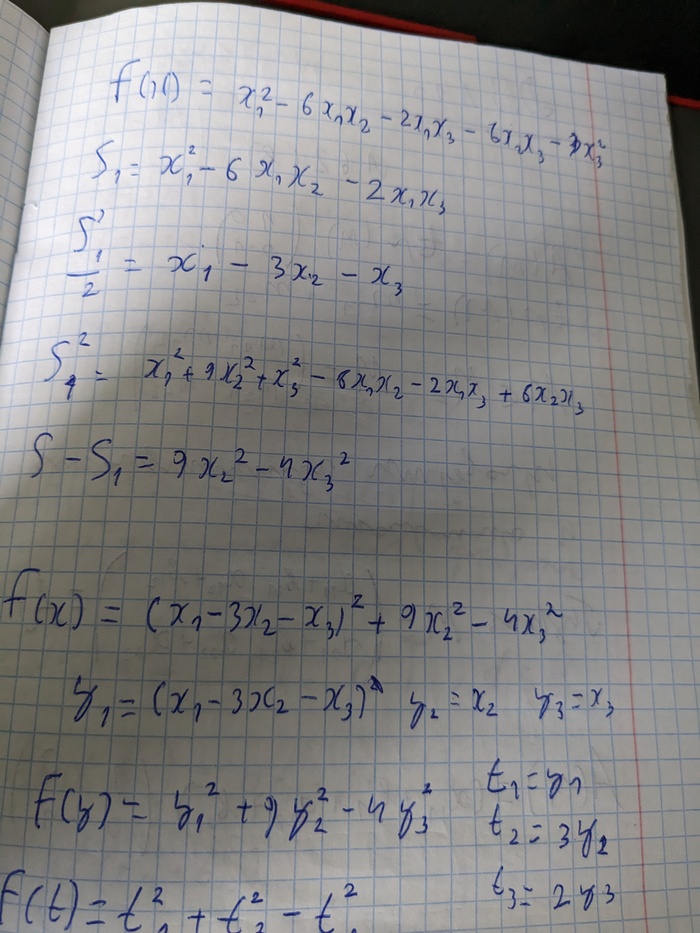 f(x) = x₁² - 6x₁x₂ - 2x₁x₃ - 6x₂x₃ - 3x₃²
S₁ = x₁² - 6x₁x₂ - 2x₁x₃
S₁'/2 = x₁ - 3x₂ - x₃
S₁² = x₁² + 9x₂² + x₃² - 6x₁x₂ - 2x₁x₃ + 6x₂x₃
S - S₁ = 9x₂² - 4x₃²
f(x) = (x₁ - 3x₂ - x₃)² + 9x₂² - 4x₃²
y₁ = (x₁ - 3x₂ - x₃) y₂ = x₂ y₃ = x₃
F(y) = y₁² + 9y₂² - 4y₃²
t₁ = y₁
t₂ = 3y₂
t₃ = 2y₃
F(t) = t₁² + t₂² - t₃²